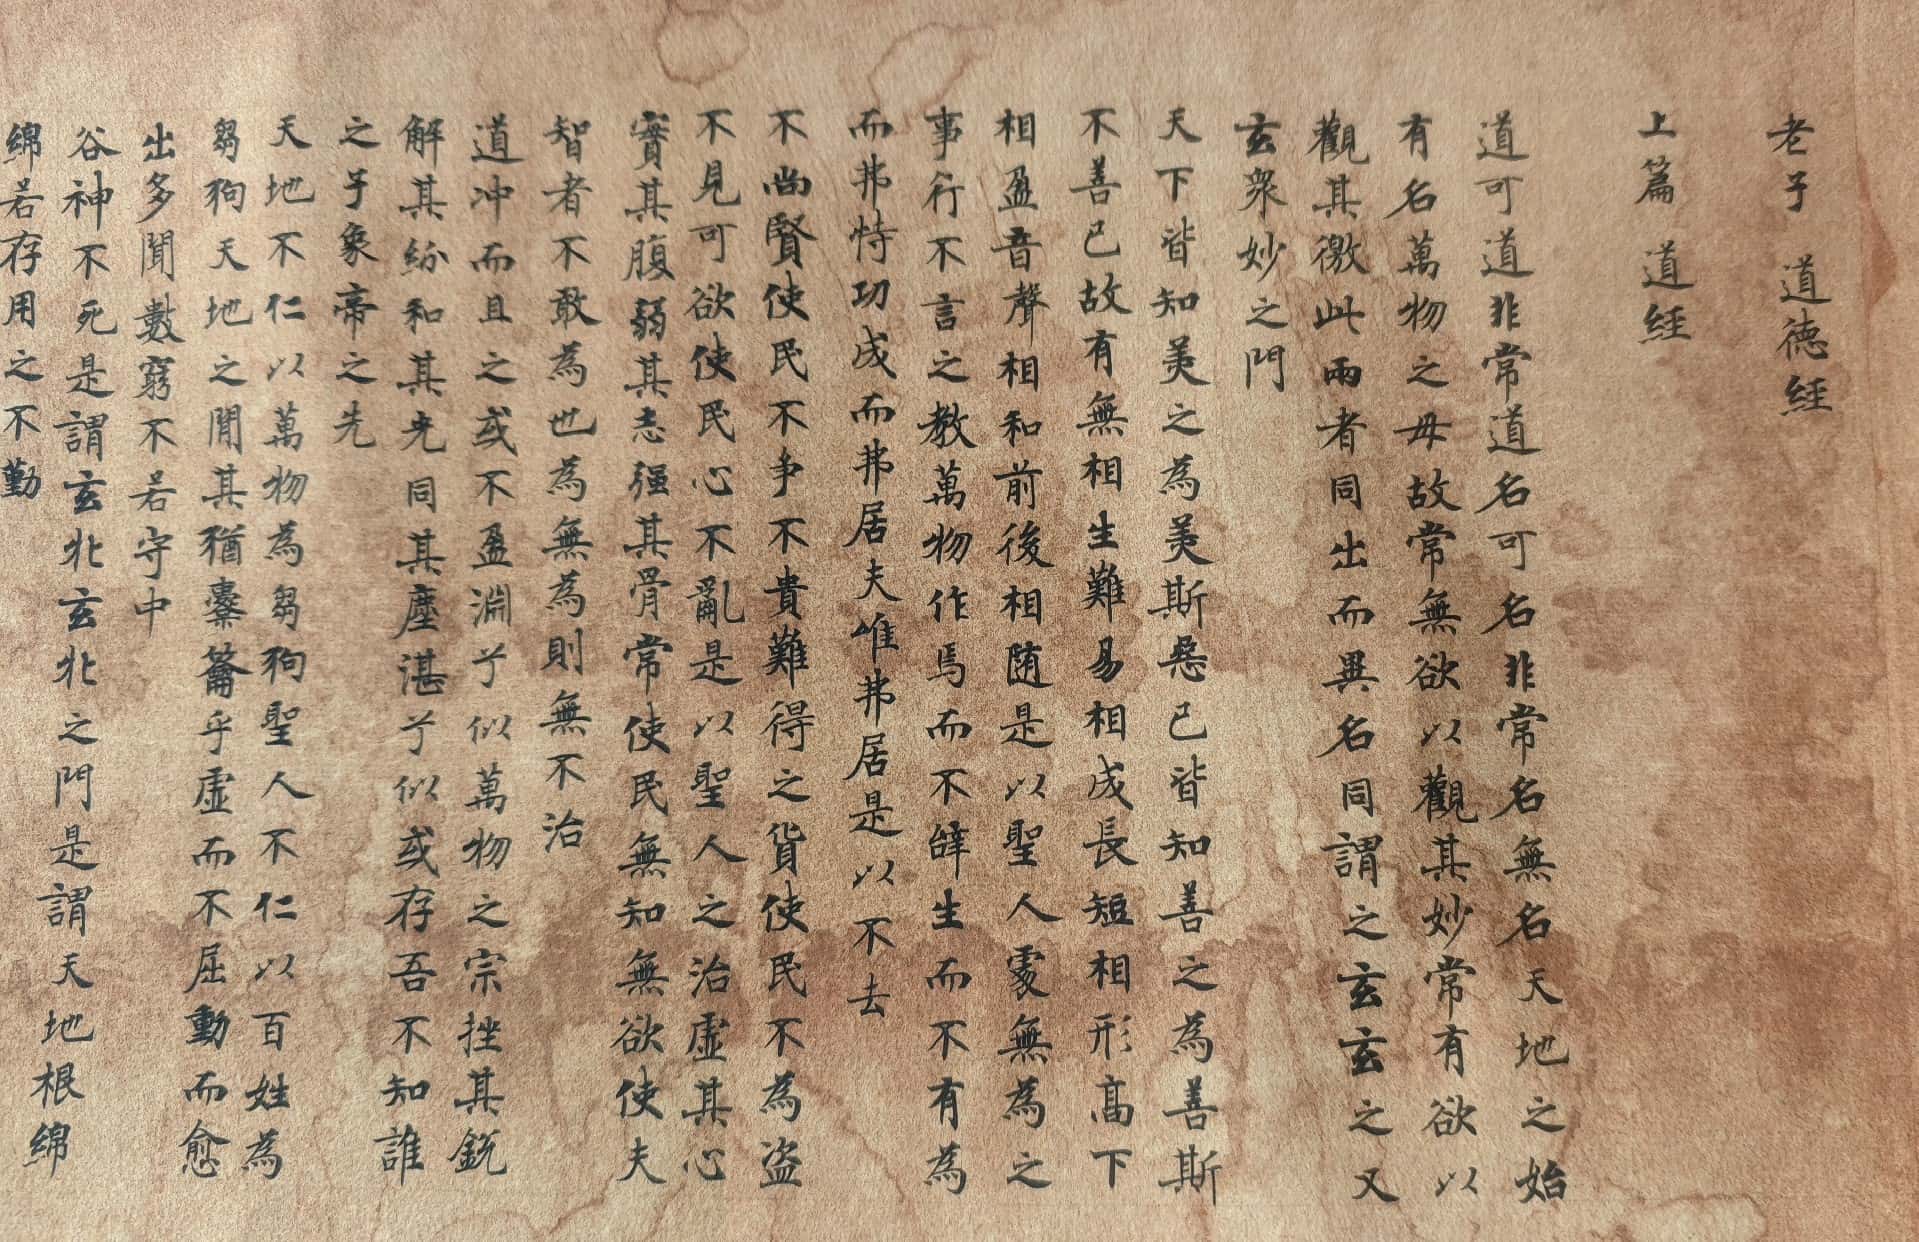 老子 道德經
上篇 道經
道可道道非常道名可名非常名無名天地之始
有名萬物之毋故常無欲以觀其妙常有欲以
觀其徼此兩者同出而異名同謂之玄玄之又
玄衆妙之門
天下皆知美之為美斯惡已皆知善之為善斯
不善已故有無相生難易相成長短相形高下
相盈音聲相和前後相随是以聖人處無為之
事行不言之教萬物作焉而不辭生而不有為
而弗恃功成而弗居夫唯弗居是以不去
不尚賢使民不争不貴難得之貨使民不為盜
不見可欲使民心不亂是以聖人之治虛其心
實其腹弱其志强其骨常使民無知無欲使夫
智者不敢為也為無為則無不治
道冲而且之或不盈淵兮似萬物之宗挫其銳
解其紛和其光同其塵湛兮似或存吾不知誰
之子象帝之先
天地不仁以萬物為芻狗聖人不仁以百姓為
芻狗天地之閒其猶橐籥乎虛而不屈動而愈
出多聞數窮不若守中
谷神不死是謂玄牝玄牝之門是謂天地根綿
綿若存用之不勤